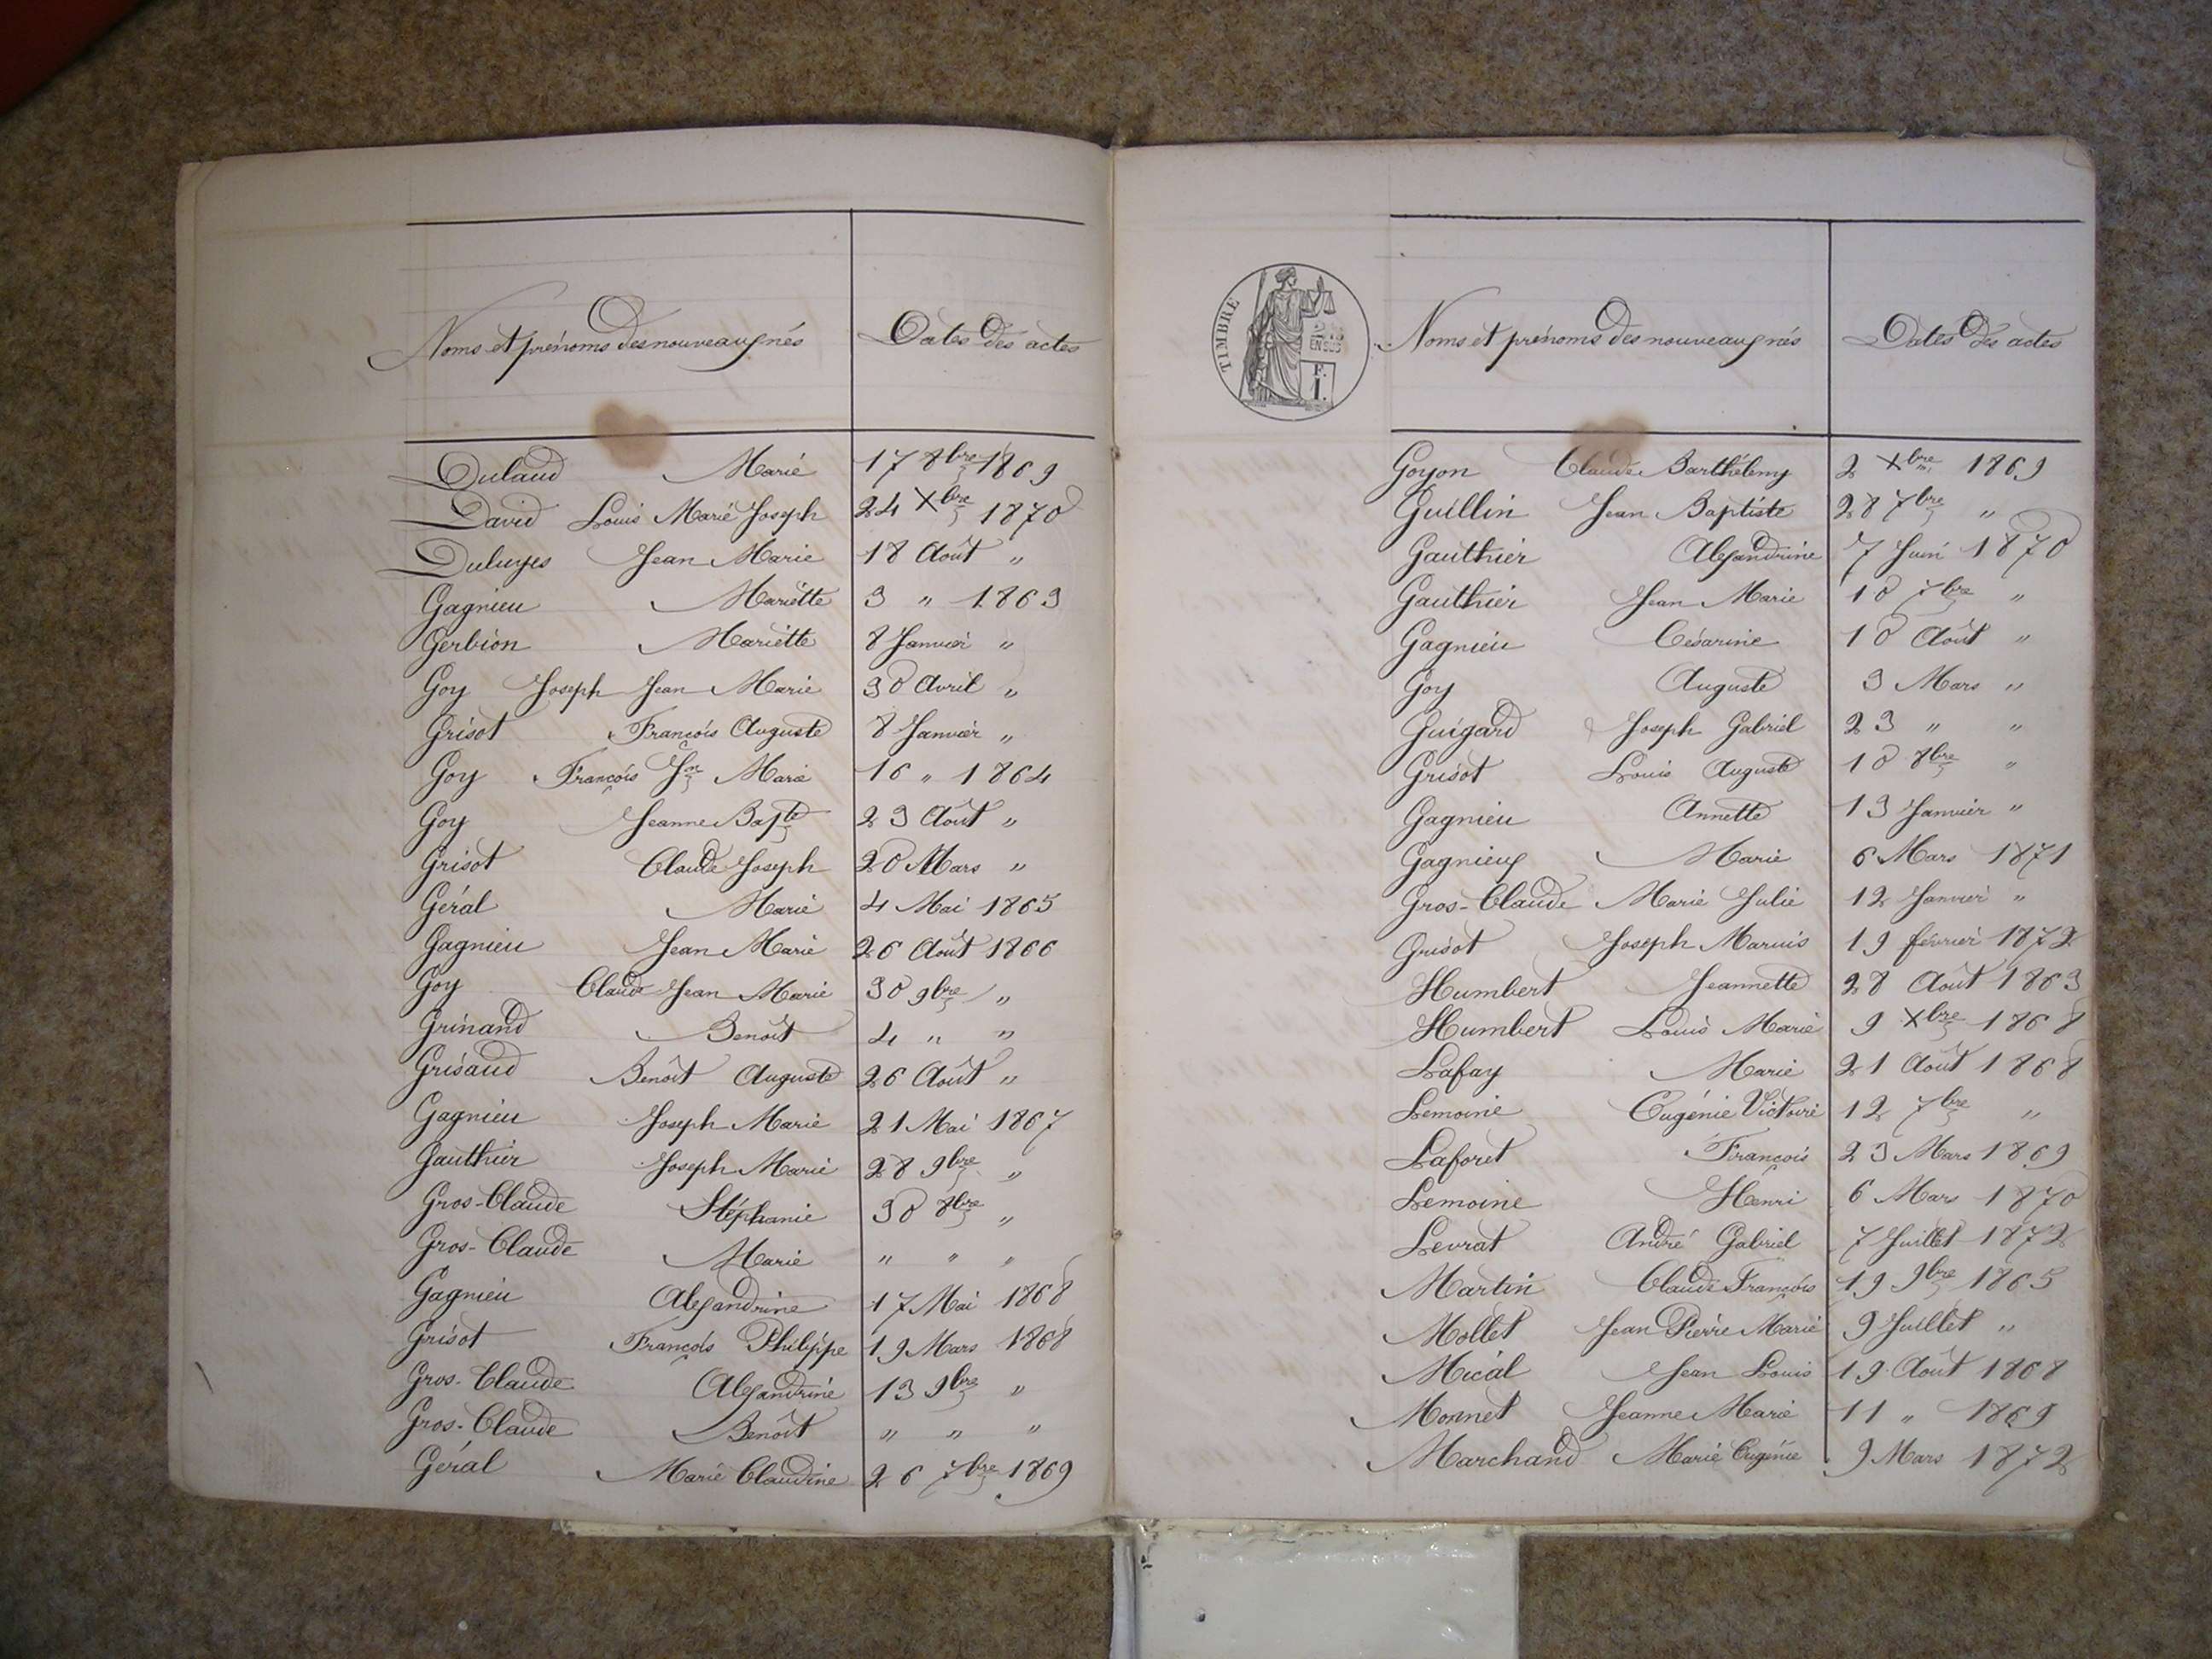 Noms et prénoms des nouveaux nés Dates des actes
Dulaud Marie 17 8bre 1869
David Louis Marie Joseph 24 Xbre 1870
Duluyes Jean Marie 18 Août "
Gagnieu Mariette 3 " 1863
Gerbion Mariette 8 Janvier "
Goy Joseph Jean Marie 30 Avril "
Grisot François Auguste 8 Janvier "
Goy François Jn Marie 16 " 1864
Goy Jeanne Bapte 23 Août "
Grisot Claude Joseph 20 Mars "
Géral Marie 4 Mai 1865
Gagnieu Jean Marie 26 Août 1866
Goy Claude Jean Marie 30 9bre "
Grinand Benoît 4 " "
Grisaud Benoît Auguste 26 Août "
Gagnieu Joseph Marie 21 Mai 1867
Gauthier Joseph Marie 28 9bre "
Gros-Claude Stéphanie 30 8bre "
Gros-Claude Marie " " "
Gagnieu Alexandrine 17 Mai 1868
Grisot François Philippe 19 Mars 1868
Gros-Claude Alexandrine 13 9bre "
Gros-Claude Benoît " " "
Géral Marie Claudine 26 7bre 1869
TIMBRE
EN SUS
F.
1.
Noms et prénoms des nouveaux nés Dates des actes
Goyon Claude Barthélemy 2 Xbre 1869
Guillin Jean Baptiste 28 7bre "
Gauthier Alexandrine 7 Juin 1870
Gauthier Jean Marie 10 7bre "
Gagnieu Césarine 10 Août "
Goy Auguste 3 Mars "
Guigard Joseph Gabriel 23 " "
Grisot Louis Auguste 10 8bre "
Gagnieu Annette 13 Janvier "
Gagnieux Marie 6 Mars 1871
Gros-Claude Marie Julie 12 Janvier "
Grisot Joseph Marius 19 février 1872
Humbert Jeannette 28 Août 1863
Humbert Louis Marie 9 Xbre 1868
Lafay Marie 21 Août 1868
Lemoine Eugénie Victoire 12 7bre "
Laforet François 23 Mars 1869
Lemoine Henri 6 Mars 1870
Levrat André Gabriel 7 Juillet 1872
Martin Claude François 19 9bre 1865
Mollet Jean Pierre Marie 9 Juillet "
Mical Jean Louis 19 Août 1868
Monnet Jeanne Marie 11 " 1869
Marchand Marie Eugénie 9 Mars 1872